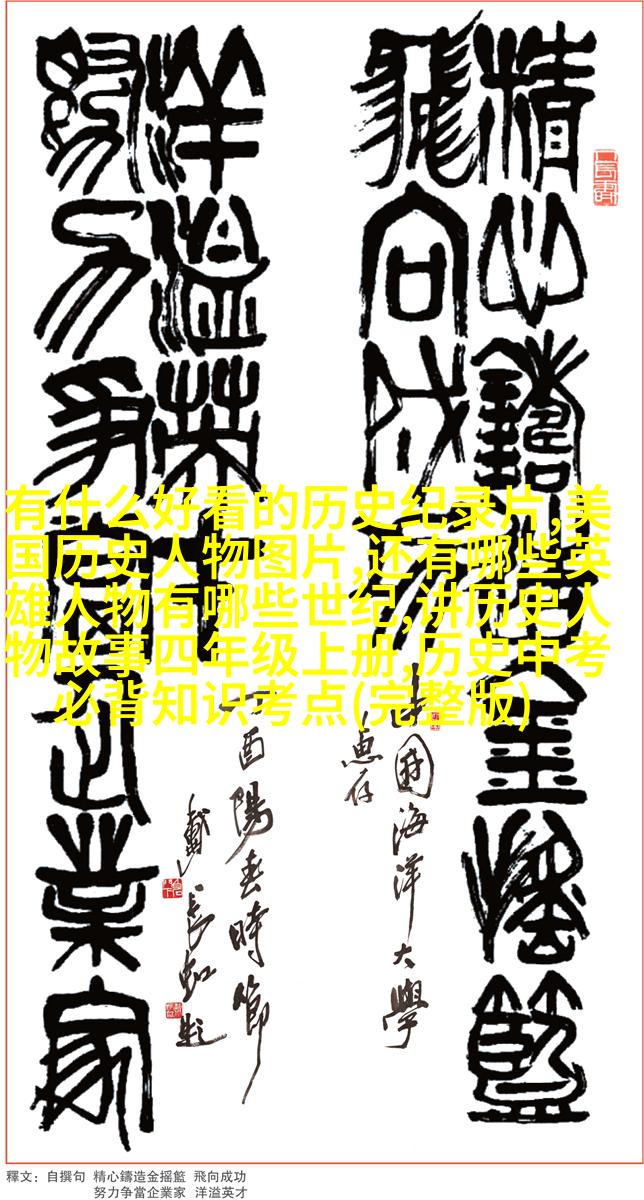 精心鑄造金摇籃
飛向成功
中國海洋大學
惠存
努力争當企業家
洋溢英才
酉陽春時節
戴長虹題
有什么好看的历史纪录片,美
国历史人物图片,还有哪些英
雄人物有哪些世纪,讲历史人
物故事四年级上册,历史中考
必背知识考点(完整版)
釋文：自撰句 精心鑄造金摇籃 飛向成功
努力争當企業家 洋溢英才